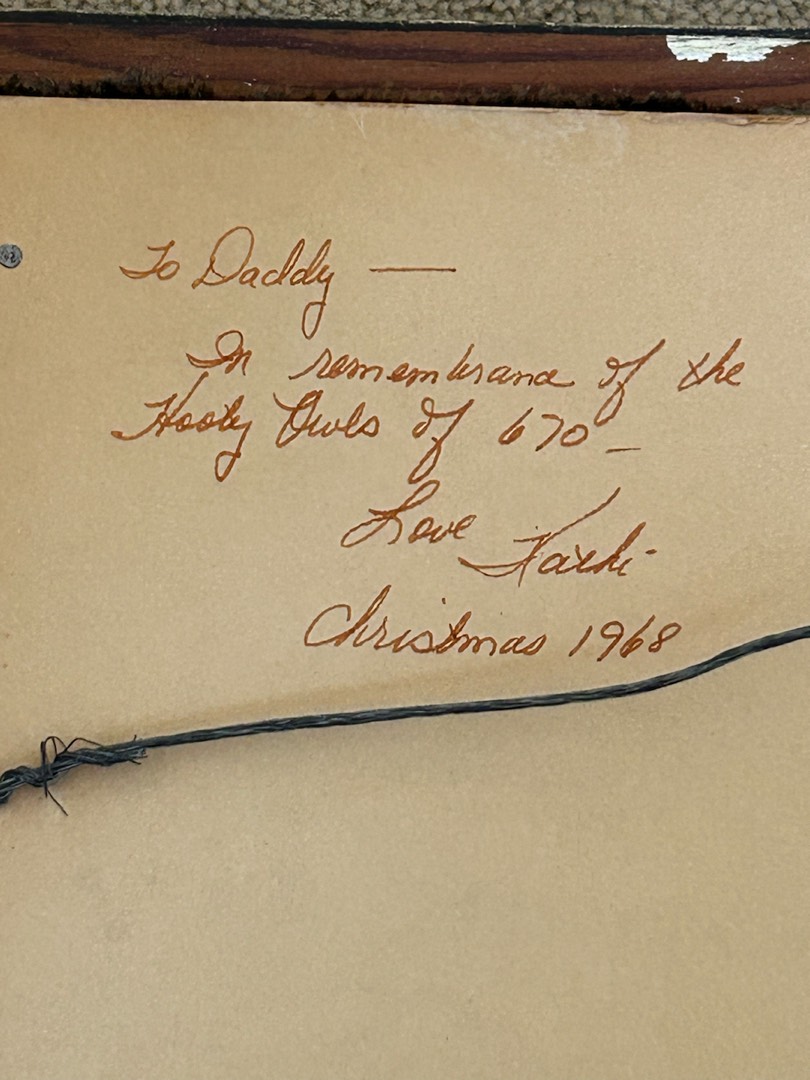 To Daddy —
In remembrance of the
Hooty Owls of 670 –
Love
Christmas 1968